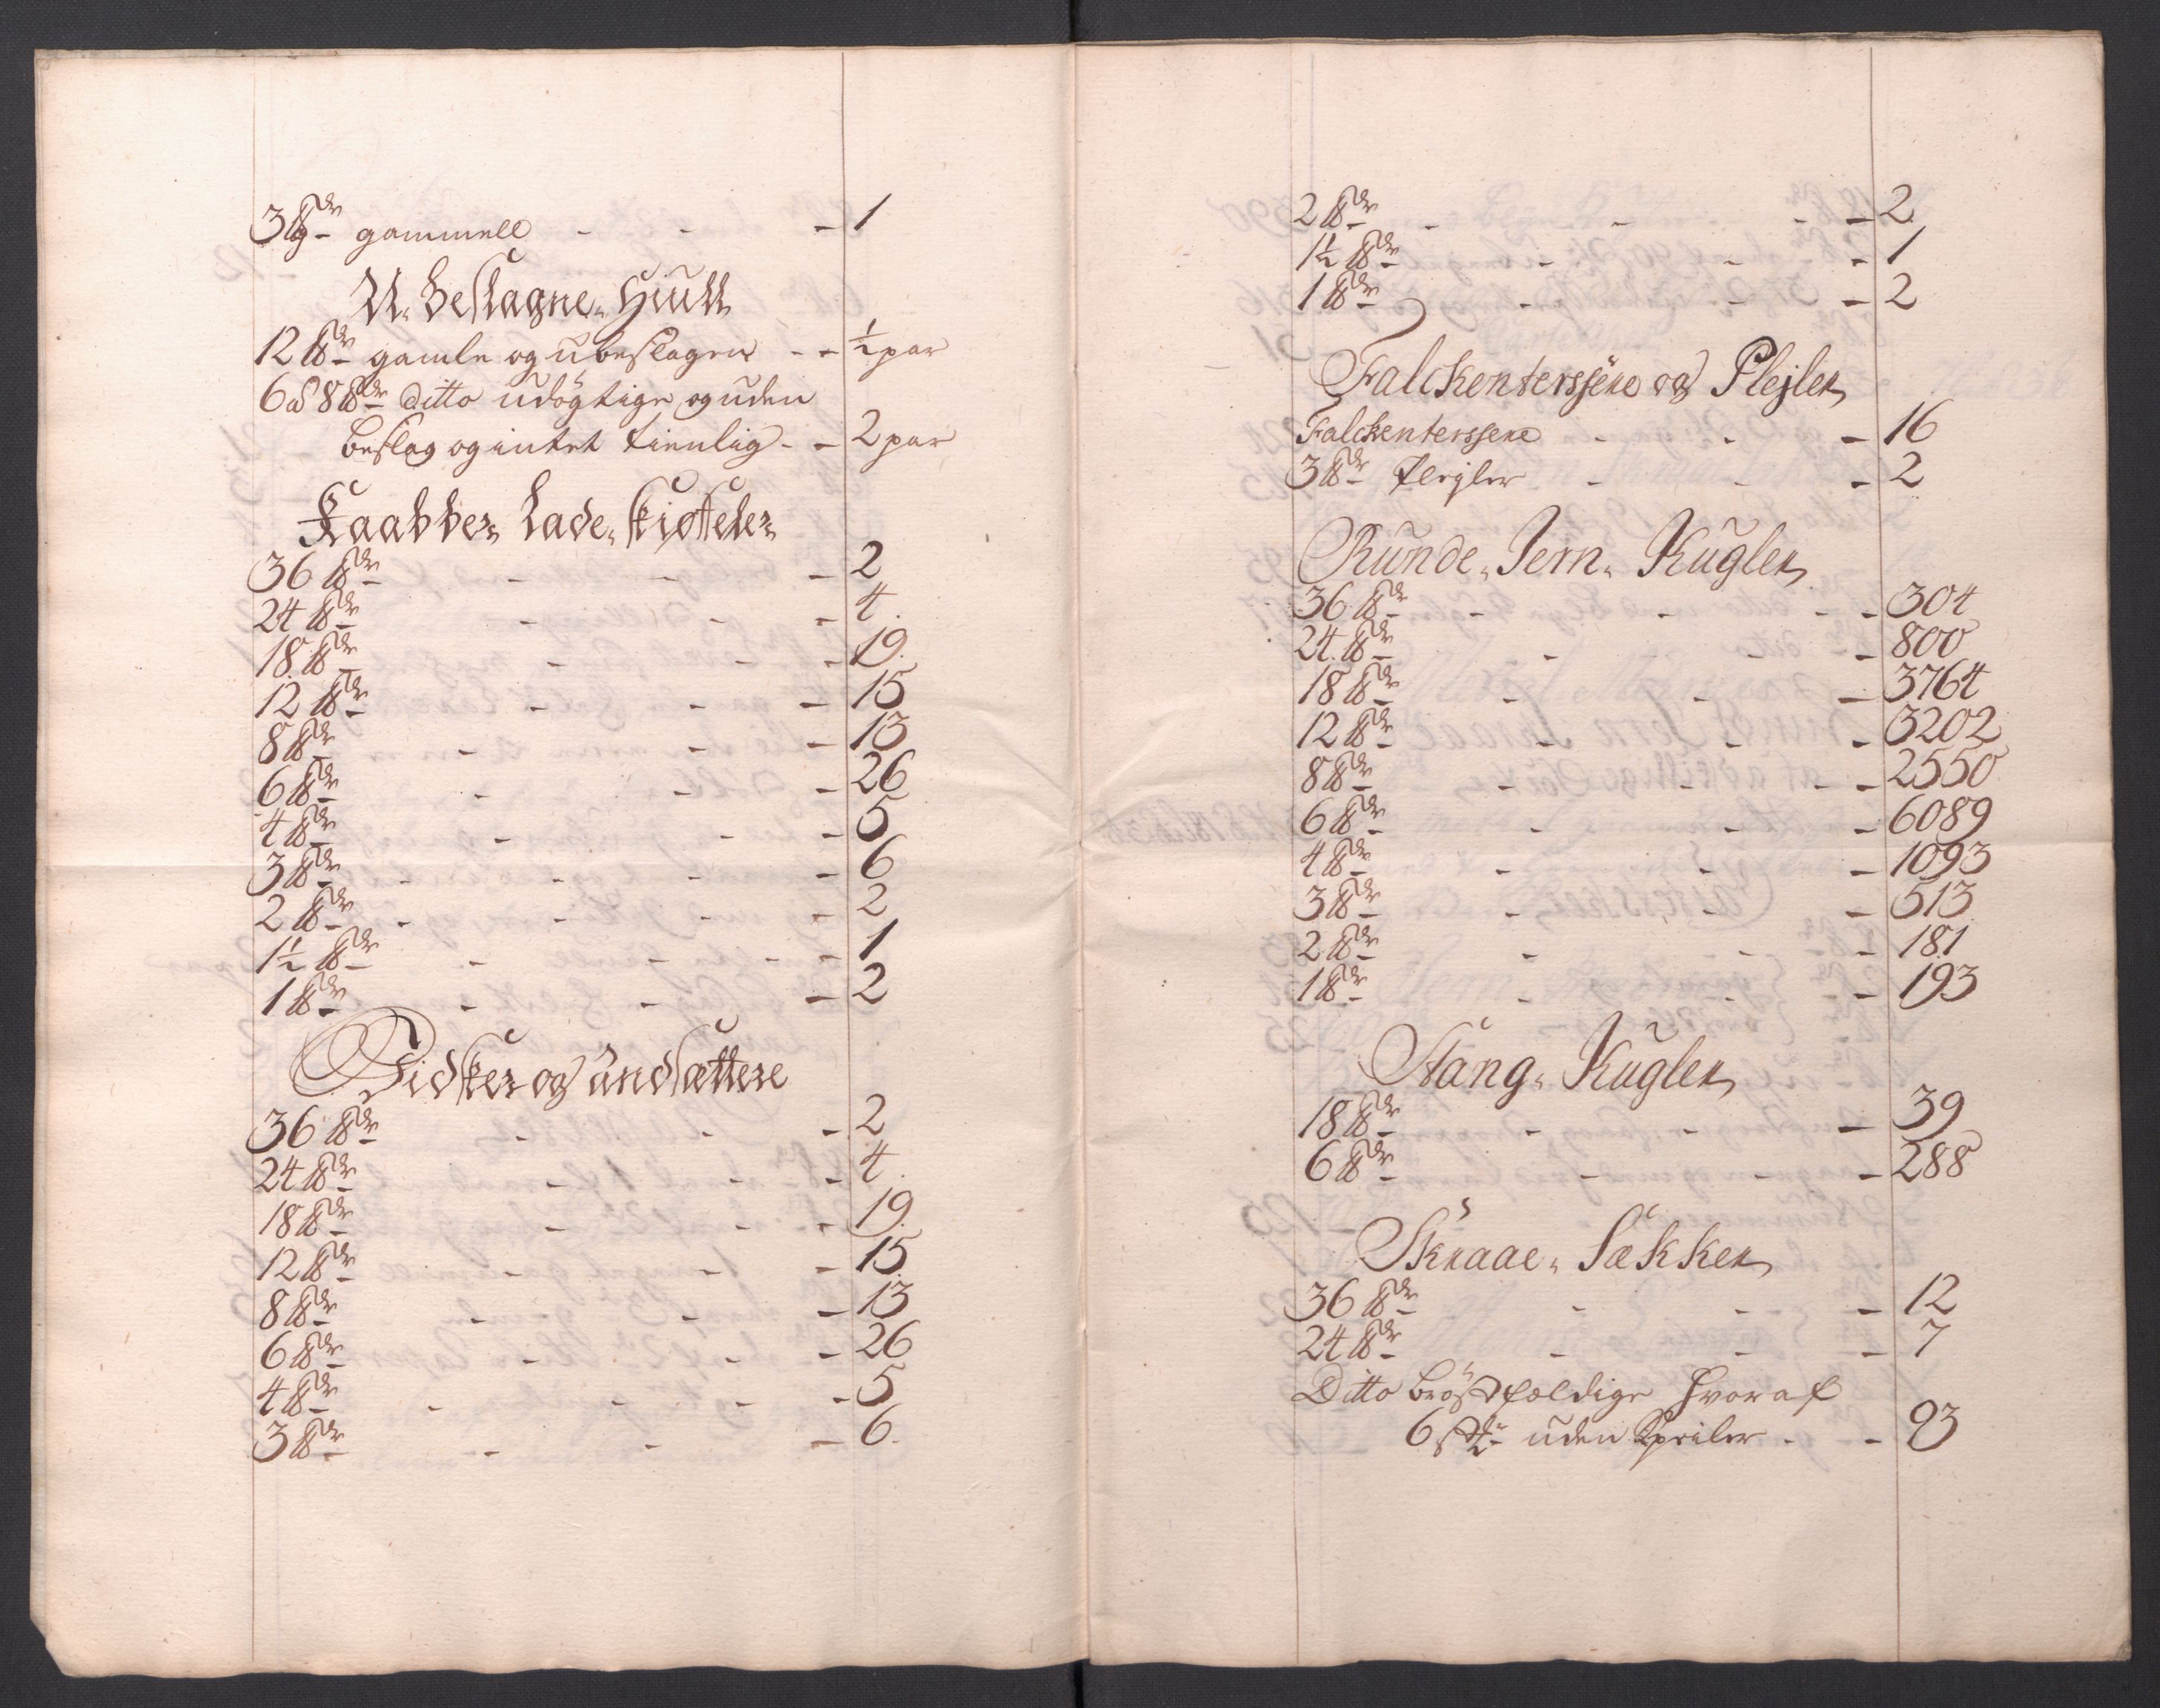 3 ℔dr gammell - - - 1
U-Beslagne-Hiull
12 ℔dr gamle og ubeslagen - - ½ par
6 à 8 ℔dr Ditto udögtige og uden
beslag og intet tienlig - - 2 par
Kaabber Lade-Skioffeler
36 ℔dr - - - 2
24 ℔dr - - - 4.
18 ℔dr - - - 19.
12 ℔dr - - - 15
8 ℔dr - - - 13
6 ℔dr - - - 26
4 ℔dr - - - 5
3 ℔dr - - - 6
2 ℔dr - - - 2
1½ ℔dr - - - 1
1 ℔dr - - - 2
Vidsker og Andsættere
36 ℔dr - - - 2
24 ℔dr - - - 4.
18 ℔dr - - - 19.
12 ℔dr - - - 15
8 ℔dr - - - 13
6 ℔dr - - - 26
4 ℔dr - - - 5
3 ℔dr - - - 6.
2 ℔dr - - - 2
1½ ℔dr - - - 1
1 ℔dr - - - 2
Falckenterssere og Plejler
Falckenterssere - - - 16
3 ℔dr Plejler - - - 2
Runde-Jern-Kugler
36 ℔dr - - - 304
24 ℔dr - - - 800
18 ℔dr - - - 3764
12 ℔dr - - - 3202
8 ℔dr - - - 2550
6 ℔dr - - - 6089
4 ℔dr - - - 1093
3 ℔dr - - - 513
2 ℔dr - - - 181
1 ℔dr - - - 193
Stang-Kugler
18 ℔dr - - - 39
6 ℔dr - - - 288
Skraae-Sækker
36 ℔dr - - - 12
24 ℔dr - - - 7
Ditto bröstfældige hvoraf
6 st: uden Speiler - - 93